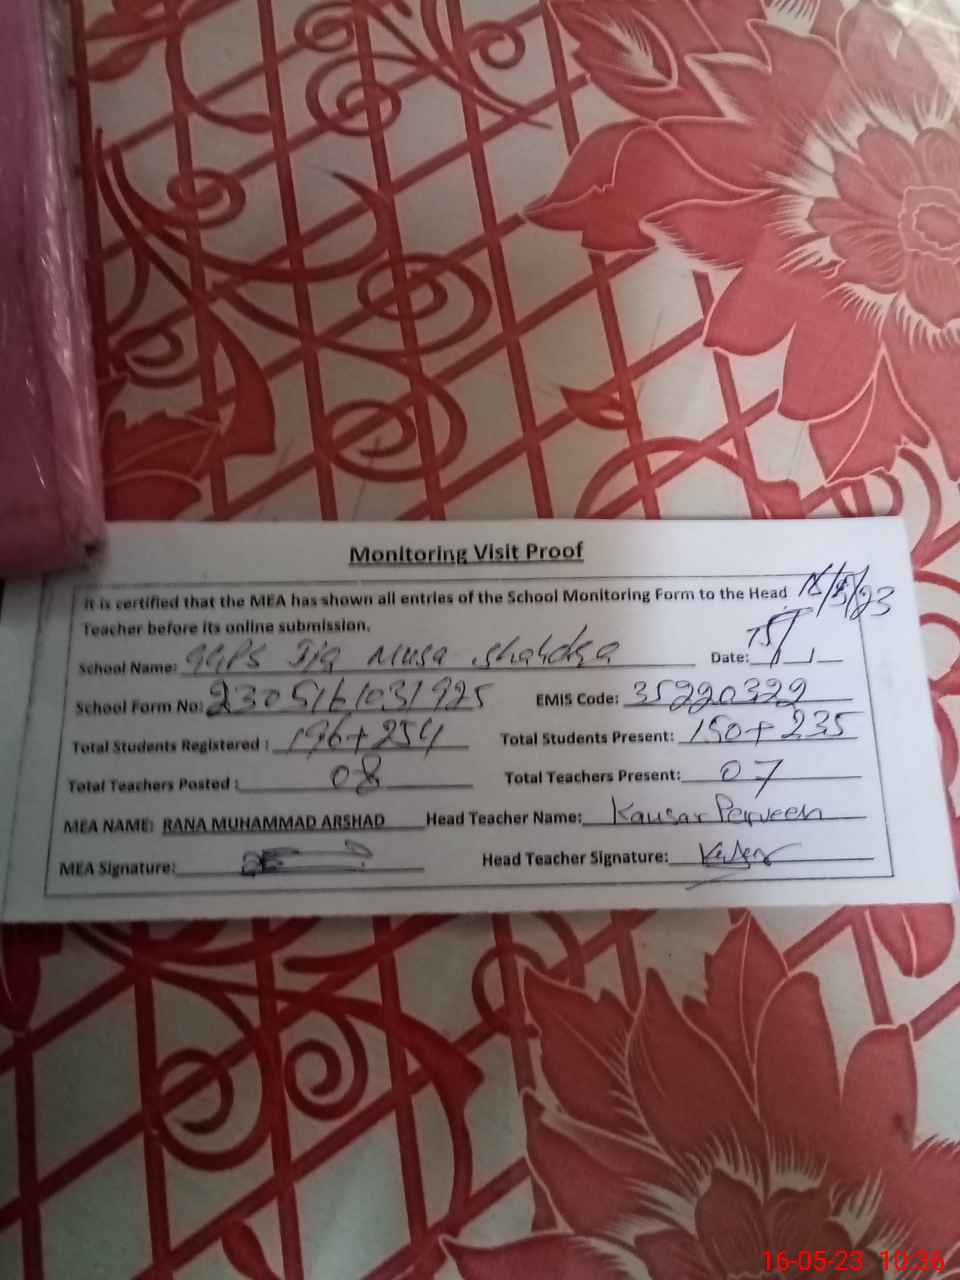 Monitoring Visit Proof
It is certified that the MEA has shown all entries of the School Monitoring Form to the Head
Teacher before its online submission.
School Name: GGPS Jia Musa Date:
School Form No: 2305161031925 EMIS Code: 35220322
Total Students Registered : 196+254 Total Students Present: 150+235
Total Teachers Posted : 08 Total Teachers Present: 07
MEA NAME: RANA MUHAMMAD ARSHAD Head Teacher Name: Kausar Perveen
MEA Signature: Head Teacher Signature:
16-05-23 10:36